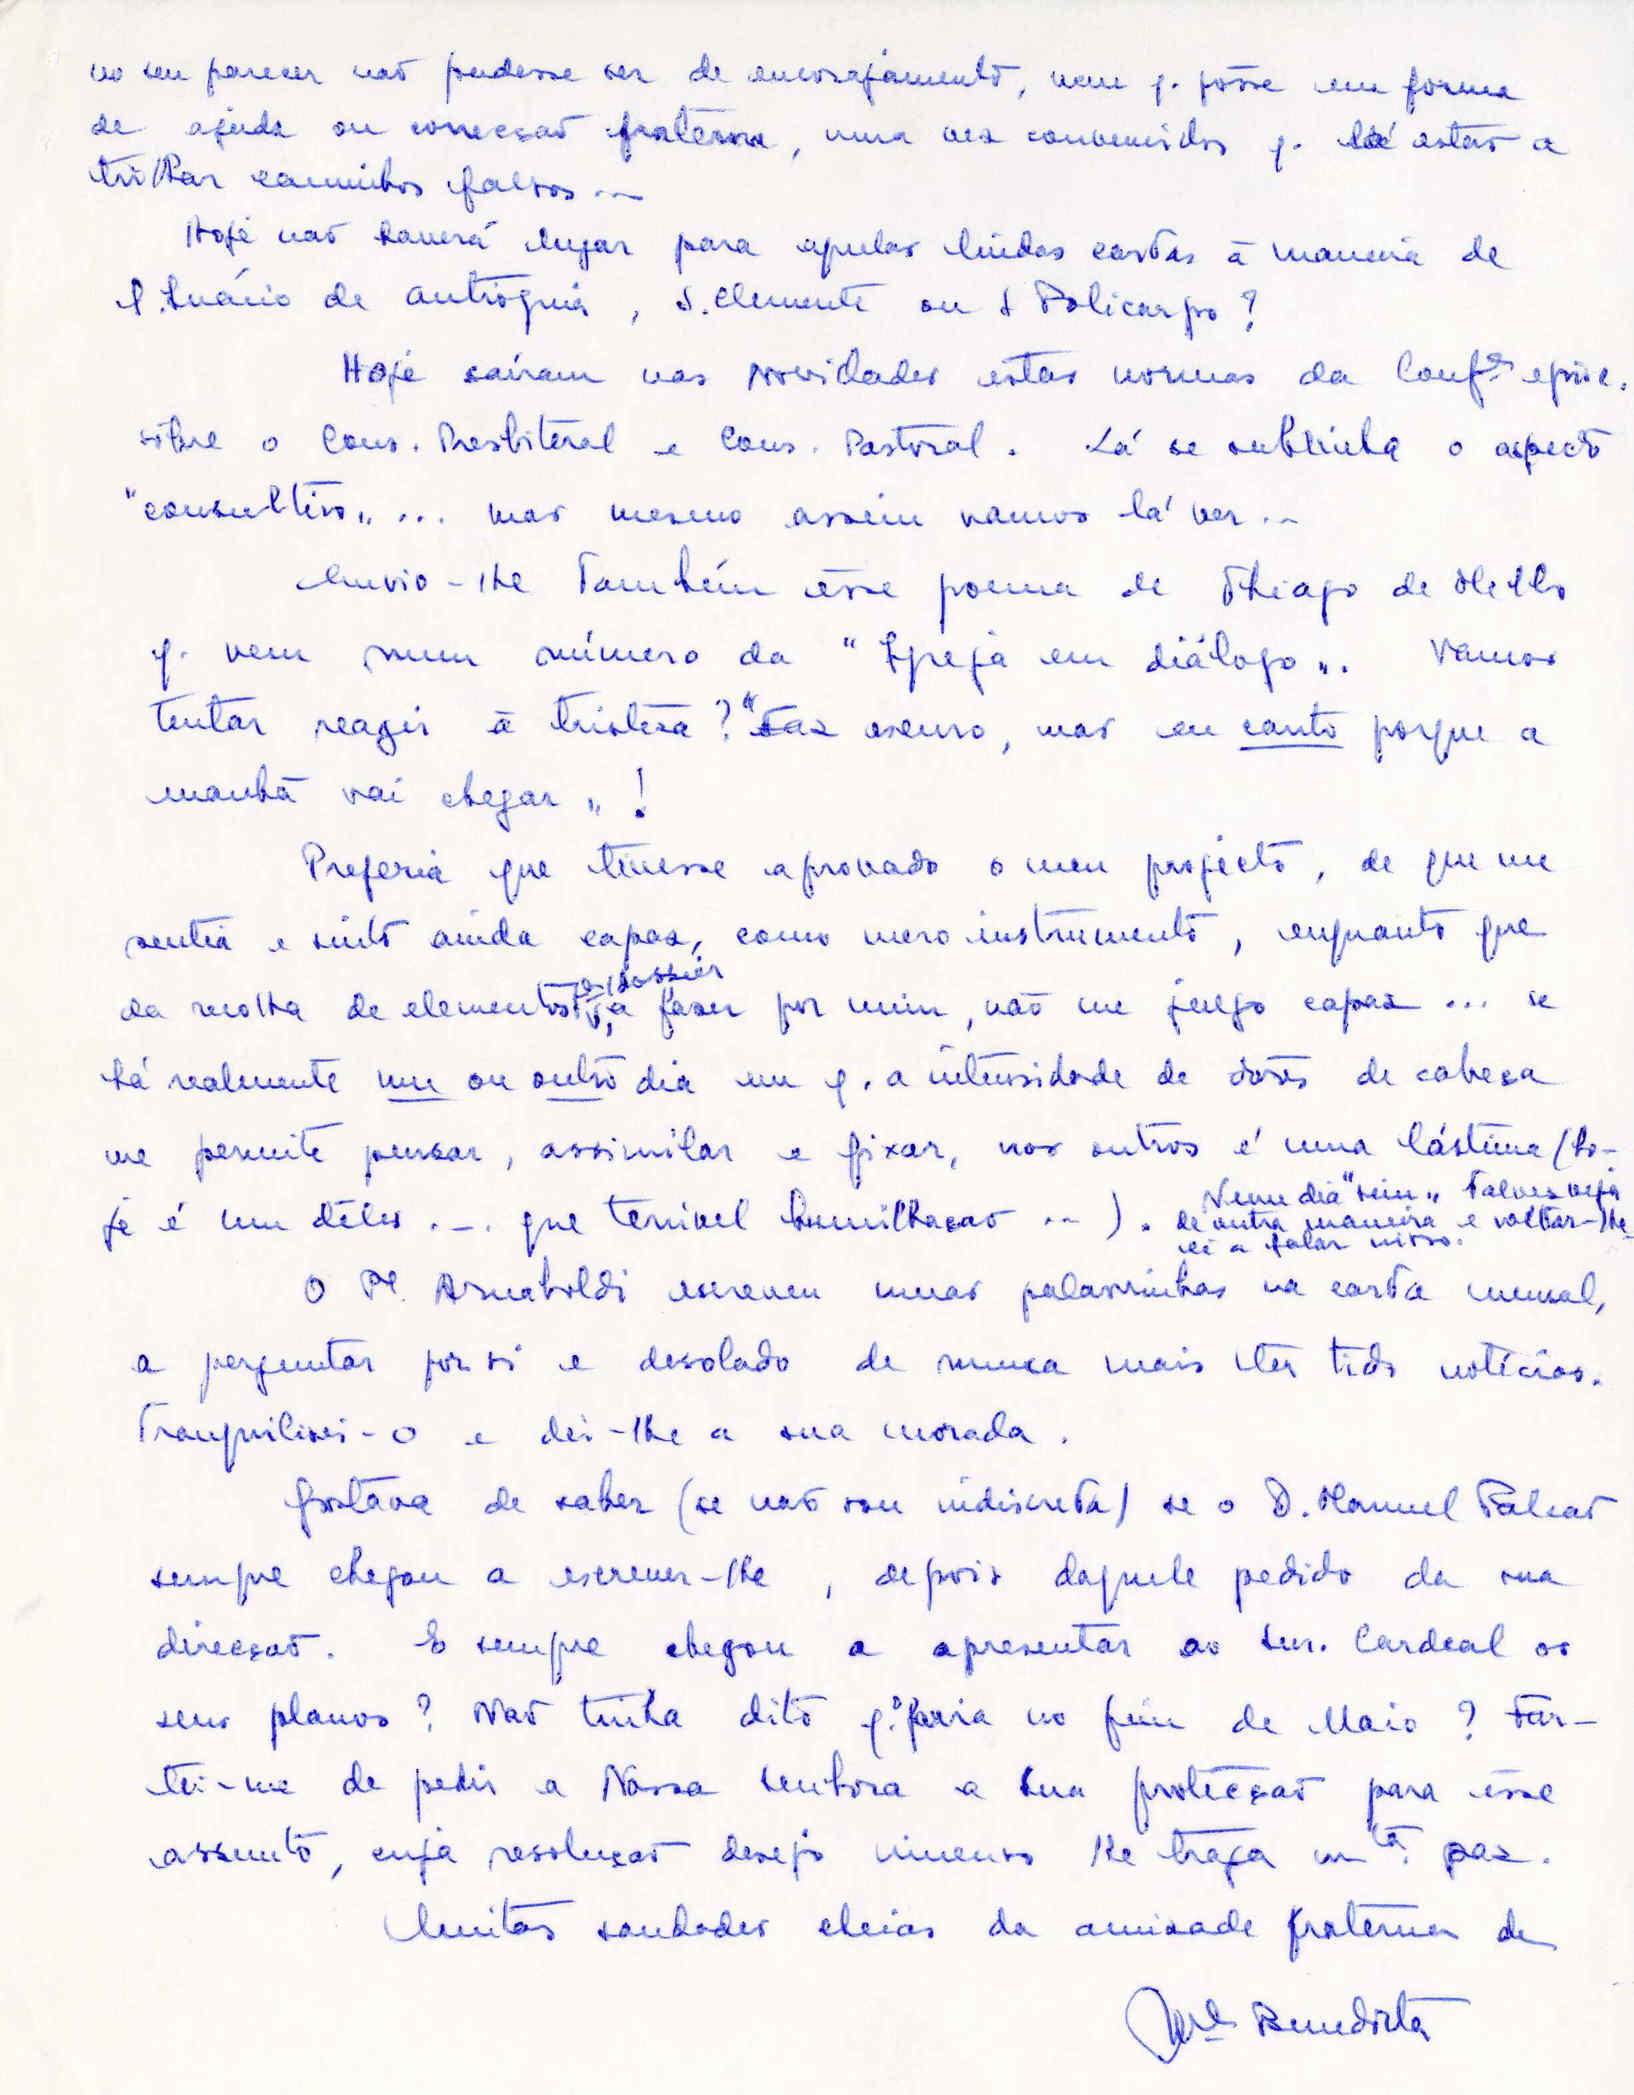 no seu parecer não pudesse ser de encorajamento, nem q. fôsse em forma
de ajuda ou correcção fraterna, uma vez convencidos q. estão a
trilhar caminhos falsos ...
Hoje não haverá lugar para aquelas lindas cartas à maneira de
S. Inácio de Antioquia, S. Clemente ou S Policarpo?
Hoje saíram nas Novidades estas normas da Conf.ª episc.
sôbre o Cons. Presbiteral e Cons. Pastoral. Lá se sublinha o aspecto
"consultivo" ... mas mesmo assim vamos lá ver ...
Envio-lhe também êsse poema de Thiago de Mello
q. vem num número da "Igreja em diálogo". Vamos
tentar reagir à tristeza? "Faz escuro, mas eu canto porque a
manhã vai chegar"!
Preferia que tivesse aprovado o meu projecto, de que me
sentia e sinto ainda capaz, como mero instrumento, enquanto que
da recolha de elementos p/ dossier, a fazer por mim, não me julgo capaz ... se
há realmente um ou outro dia em q. a intensidade de dôres de cabeça
me permite pensar, assimilar e fixar, nos outros é uma lástima (ho-
je é um dêles ... que terrível humilhação ...). Num dia "sim" talvez veja
de outra maneira e voltar-lhe-
ei a falar nisso.
O Pe. Arnaboldi escreveu umas palavrinhas na carta mensal,
a perguntar por si e desolado de nunca mais ter tido notícias.
Tranquilizei-o e dei-lhe a sua morada.
Gostava de saber (se não sou indiscreta) se o D. Manuel Falcão
sempre chegou a escrever-lhe, depois daquele pedido da sua
direcção. E sempre chegou a apresentar ao Snr. Cardeal os
seus planos? Não tinha dito q. o faria no fim de Maio? Far-
tei-me de pedir a Nossa Senhora a Sua protecção para êsse
assunto, cuja resolução desejo imenso lhe traga mtª. paz.
Muitas saudades cheias da amizade fraterna de
Benedicta